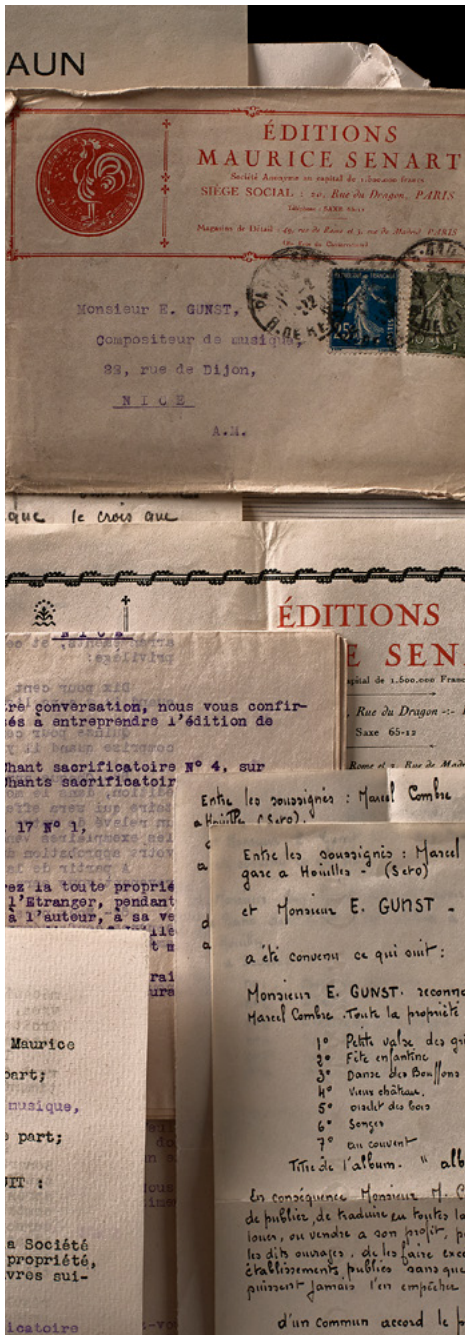 AUN
ÉDITIONS
MAURICE SENART
Société Anonyme au capital de 1.500.000 francs
SIÈGE SOCIAL : 20, Rue du Dragon, PARIS
Magasins de Détail : 49, rue de Rome et 3, rue de Madrid PARIS
Monsieur E. GUNST,
Compositeur de musique,
22, rue de Dijon,
NICE
A.M.
25
que je crois que
ÉDITIONS
E SEN
pital de 1.500.000 Franc
, Rue du Dragon -:- P
Saxe 65-12
Rome et 3, Rue de Madr
NICE
privilège:
Dix pour cent
tre conversation, nous vous confir-
és à entreprendre l'édition de
Chant sacrificatoire N° 4, sur
Chants sacrificatoir
17 N° 1,
rez la toute proprié
l'Etranger, pendant
à l'auteur, à sa ve
Maurice
part;
musique,
part;
IT :
a Société
propriété,
vres sui-
icatoire
Entre les soussignés : Marcel Combre
a Houilles (Seto).
Entre les soussignés : Marcel
gare a Houilles - (Seto)
et Monsieur E. GUNST -
a été convenu ce qui suit :
Monsieur E. GUNST. reconne
Marcel Combre. Toute la propriété
1° Petite valse des gri
2° Fête enfantine
3° Danse des Bouffons
4° Vieux château.
5° oiselet des bois
6° Songes
7° au couvent
Titre de l'album. " alb
En conséquence Monsieur M. C
de publier, de traduire en toutes la
louer, ou vendre a son profit, p
les dits ouvrages, de les faire exec
établissements publics sans que
puissent jamais l'en empêcher
d'un commun accord le p